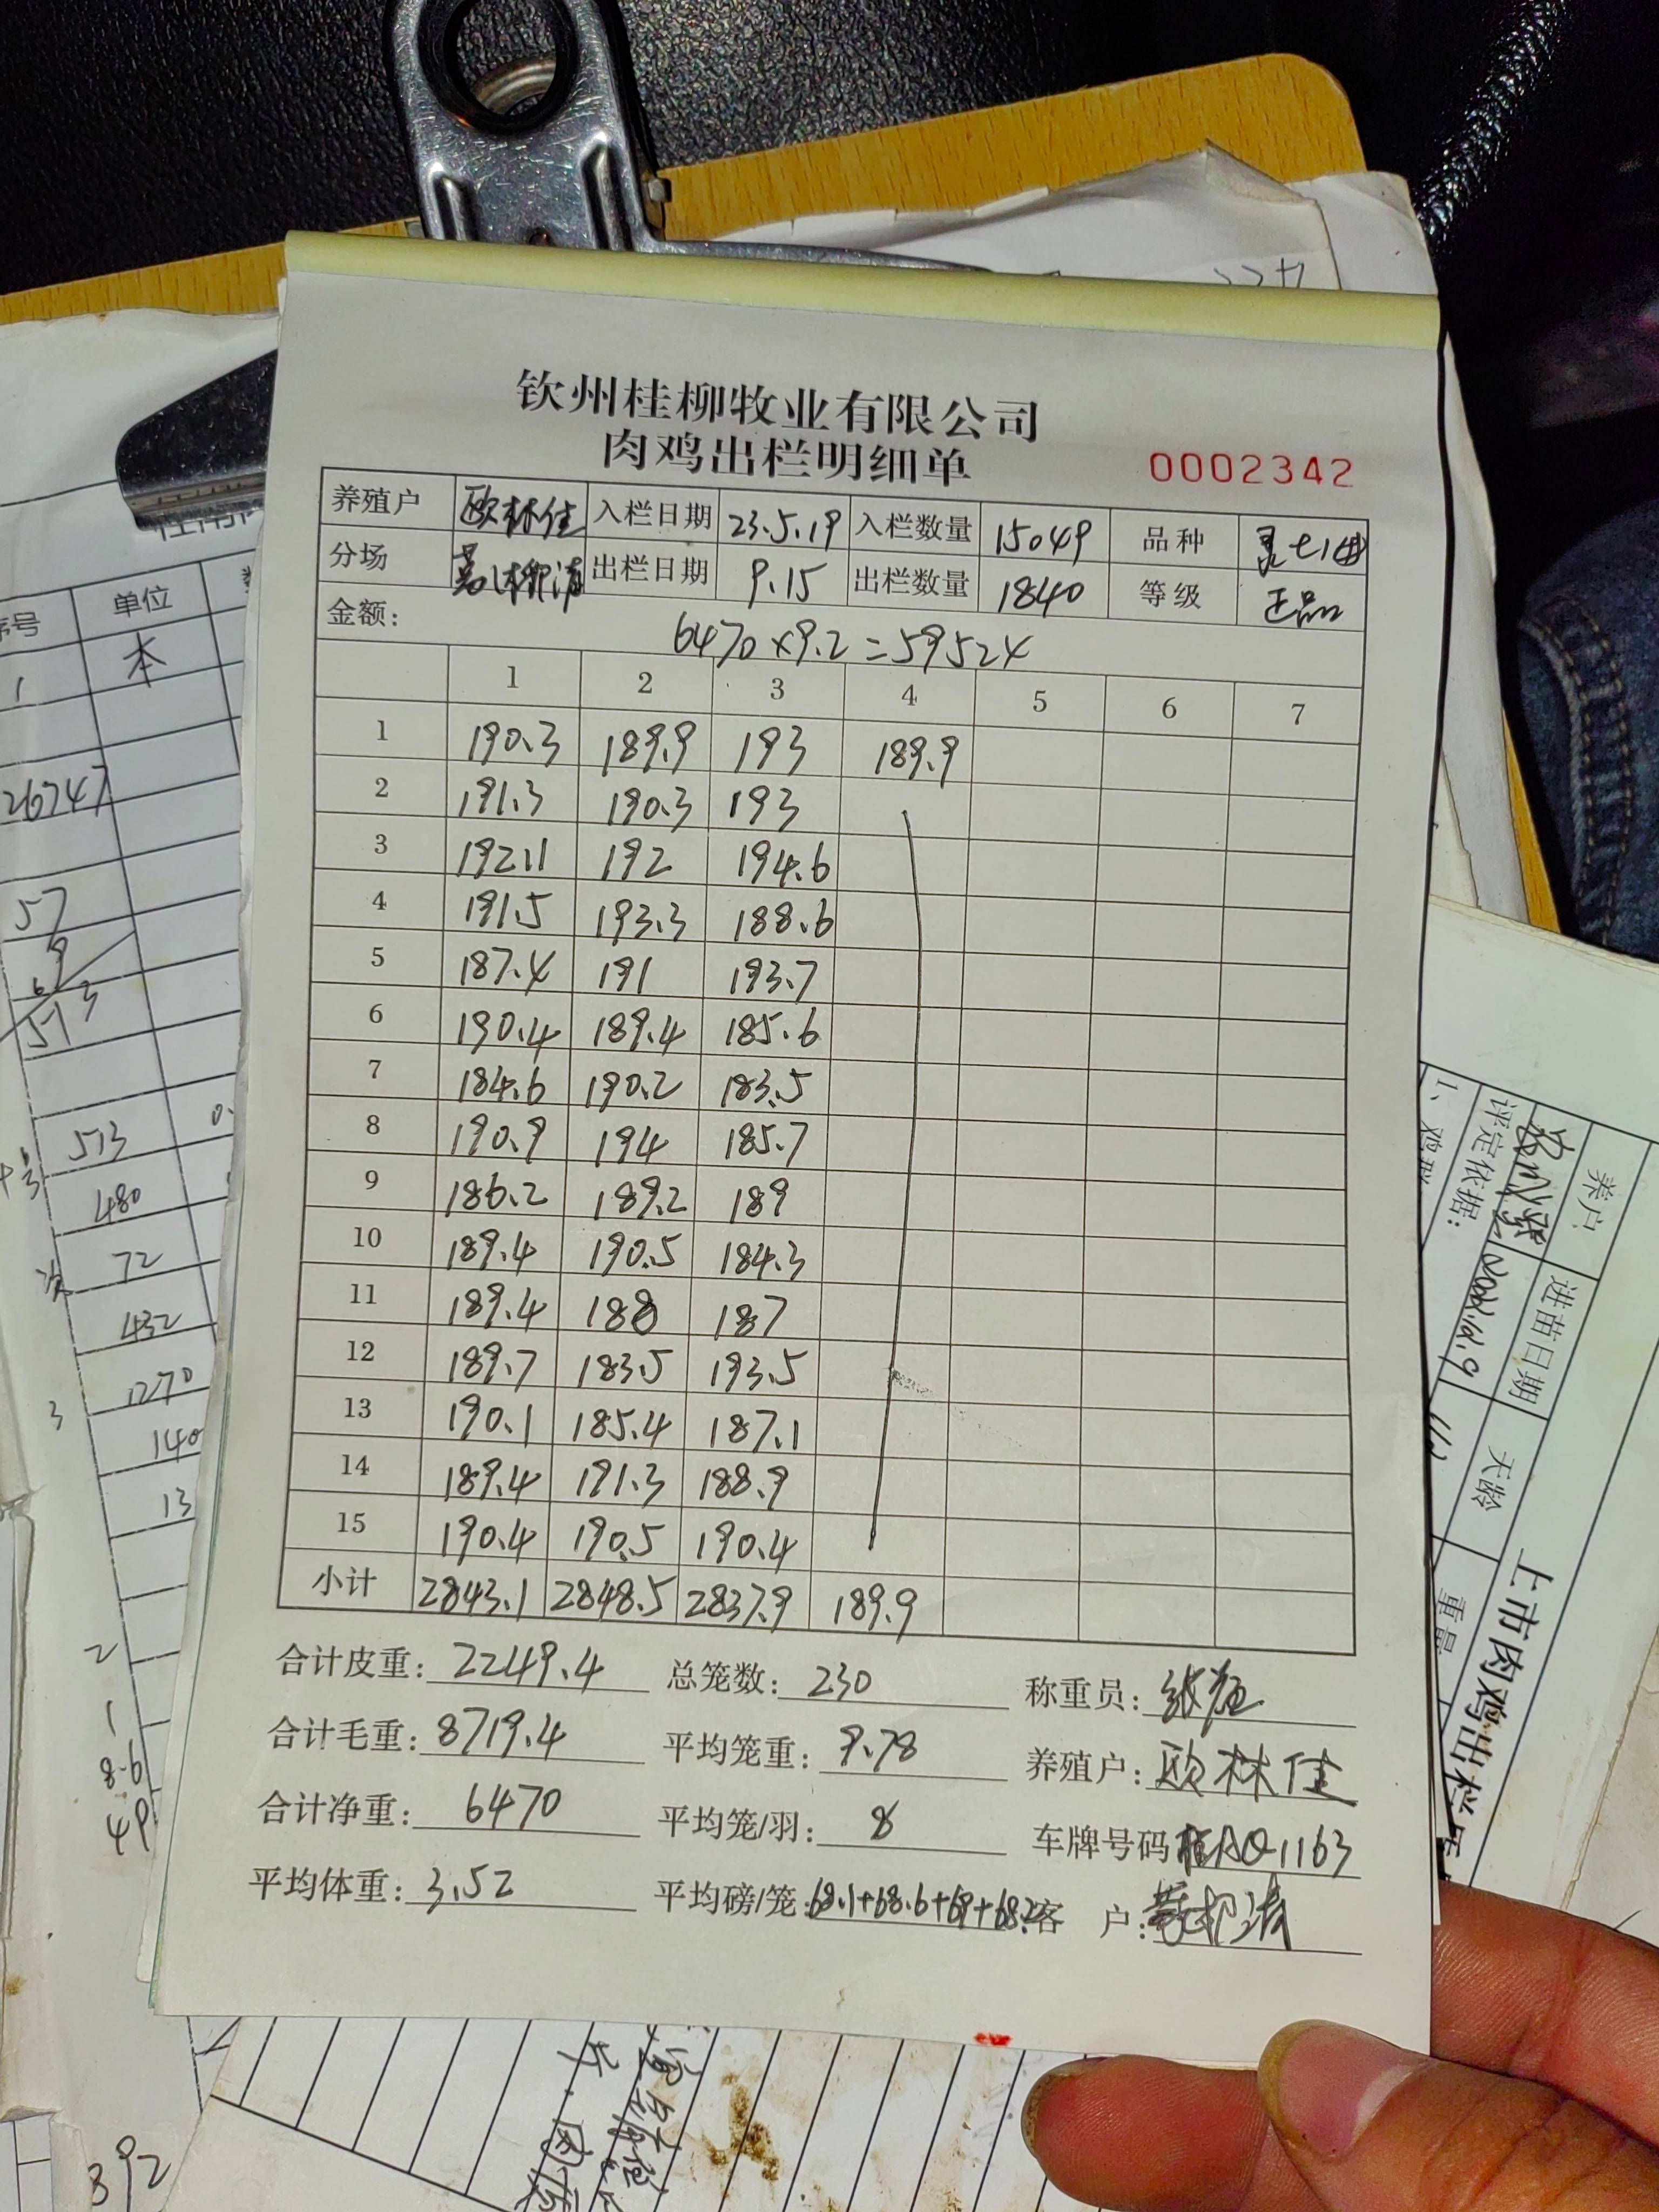 钦州桂柳牧业有限公司
肉鸡出栏明细单 0002342
养殖户 欧林佳 入栏日期 23.5.19 入栏数量 15049 品种
分场 出栏日期 9.15 出栏数量 1840 等级 正品
金额: 6470×9.2=59524
1 2 3 4 5 6 7
1 190.3 189.9 193 189.9
2 191.3 190.3 193
3 192.1 192 194.6
4 191.5 193.3 188.6
5 187.4 191 193.7
6 190.4 189.4 185.6
7 184.6 190.2 183.5
8 190.9 194 185.7
9 186.2 189.2 189
10 189.4 190.5 184.3
11 189.4 188 187
12 189.7 183.5 193.5
13 190.1 185.4 187.1
14 189.4 191.3 188.9
15 190.4 190.5 190.4
小计 2843.1 2848.5 2837.9 189.9
合计皮重: 2249.4 总笼数: 230 称重员:
合计毛重: 8719.4 平均笼重: 9.78 养殖户: 欧林佳
合计净重: 6470 平均笼/羽: 8 车牌号码 桂AQ1163
平均体重: 3.52 平均磅/笼: 68.1+68.6+69+68.2 客 户:
序号 单位
1 本
26747
57
513
480
72
432
1270
140
13
3
2
1
8.6
49
392
上市肉鸡出栏
养户 进苗日期 天龄 重量
评定依据: